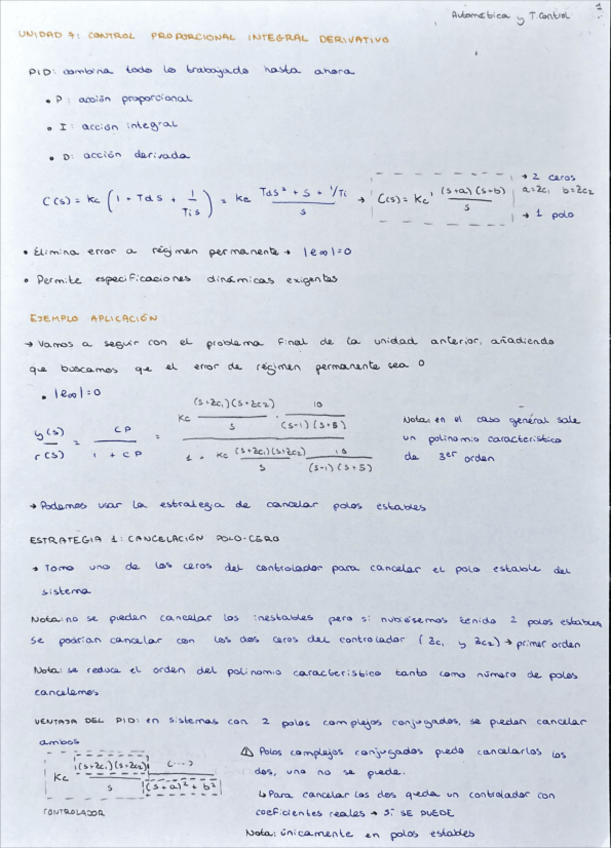 Automática y T. Control
1
UNIDAD 7: CONTROL PROPORCIONAL INTEGRAL DERIVATIVO
PID: combina todo lo trabajado hasta ahora
• P: acción proporcional
• I: acción integral
• D: acción derivada
C(s) = Kc (1 + Tds + 1/Tis) = Kc (Tds² + s + 1/Ti)/s → C(s) = Kc' (s+a)(s+b)/s → 2 ceros
a=zc1 b=zc2
→ 1 polo
• Elimina error a régimen permanente → |e∞|=0
• Permite especificaciones dinámicas exigentes
EJEMPLO APLICACIÓN
→ Vamos a seguir con el problema final de la unidad anterior, añadiendo
que buscamos que el error de régimen permanente sea 0
• |e∞|=0
y(s)/r(s) = CP/(1 + CP) = (Kc (s+zc1)(s+zc2)/s · 10/((s-1)(s+5)))/(1 + Kc (s+zc1)(s+zc2)/s · 10/((s-1)(s+5)))
Nota: en el caso general sale
un polinomio característico
de 3er orden
→ Podemos usar la estrategia de cancelar polos estables
ESTRATEGIA 1: CANCELACIÓN POLO-CERO
→ Tomo uno de los ceros del controlador para cancelar el polo estable del
sistema
Nota: no se pueden cancelar los inestables pero si hubiésemos tenido 2 polos estables
se podrían cancelar con los dos ceros del controlador (zc1 y zc2) → primer orden
Nota: se reduce el orden del polinomio característico tanto como número de polos
cancelemos
VENTAJA DEL PID: en sistemas con 2 polos complejos conjugados, se pueden cancelar
ambos
Kc (s+zc1)(s+zc2)/s (...)/((s+a)² + b²)
CONTROLADOR
⚠ Polos complejos conjugados puedo cancelarlos los
dos, uno no se puede.
↳ Para cancelar los dos queda un controlador con
coeficientes reales → SÍ SE PUEDE
Nota: únicamente en polos estables